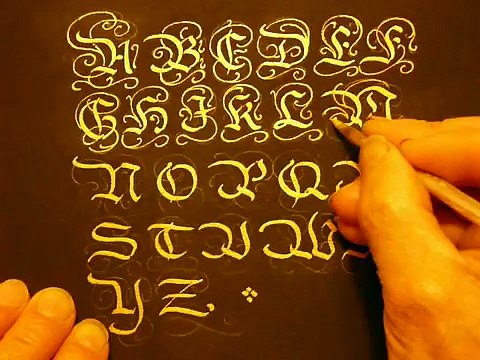 A B C D E F
G H I K L M
N O P Q R
S T V W
Y Z